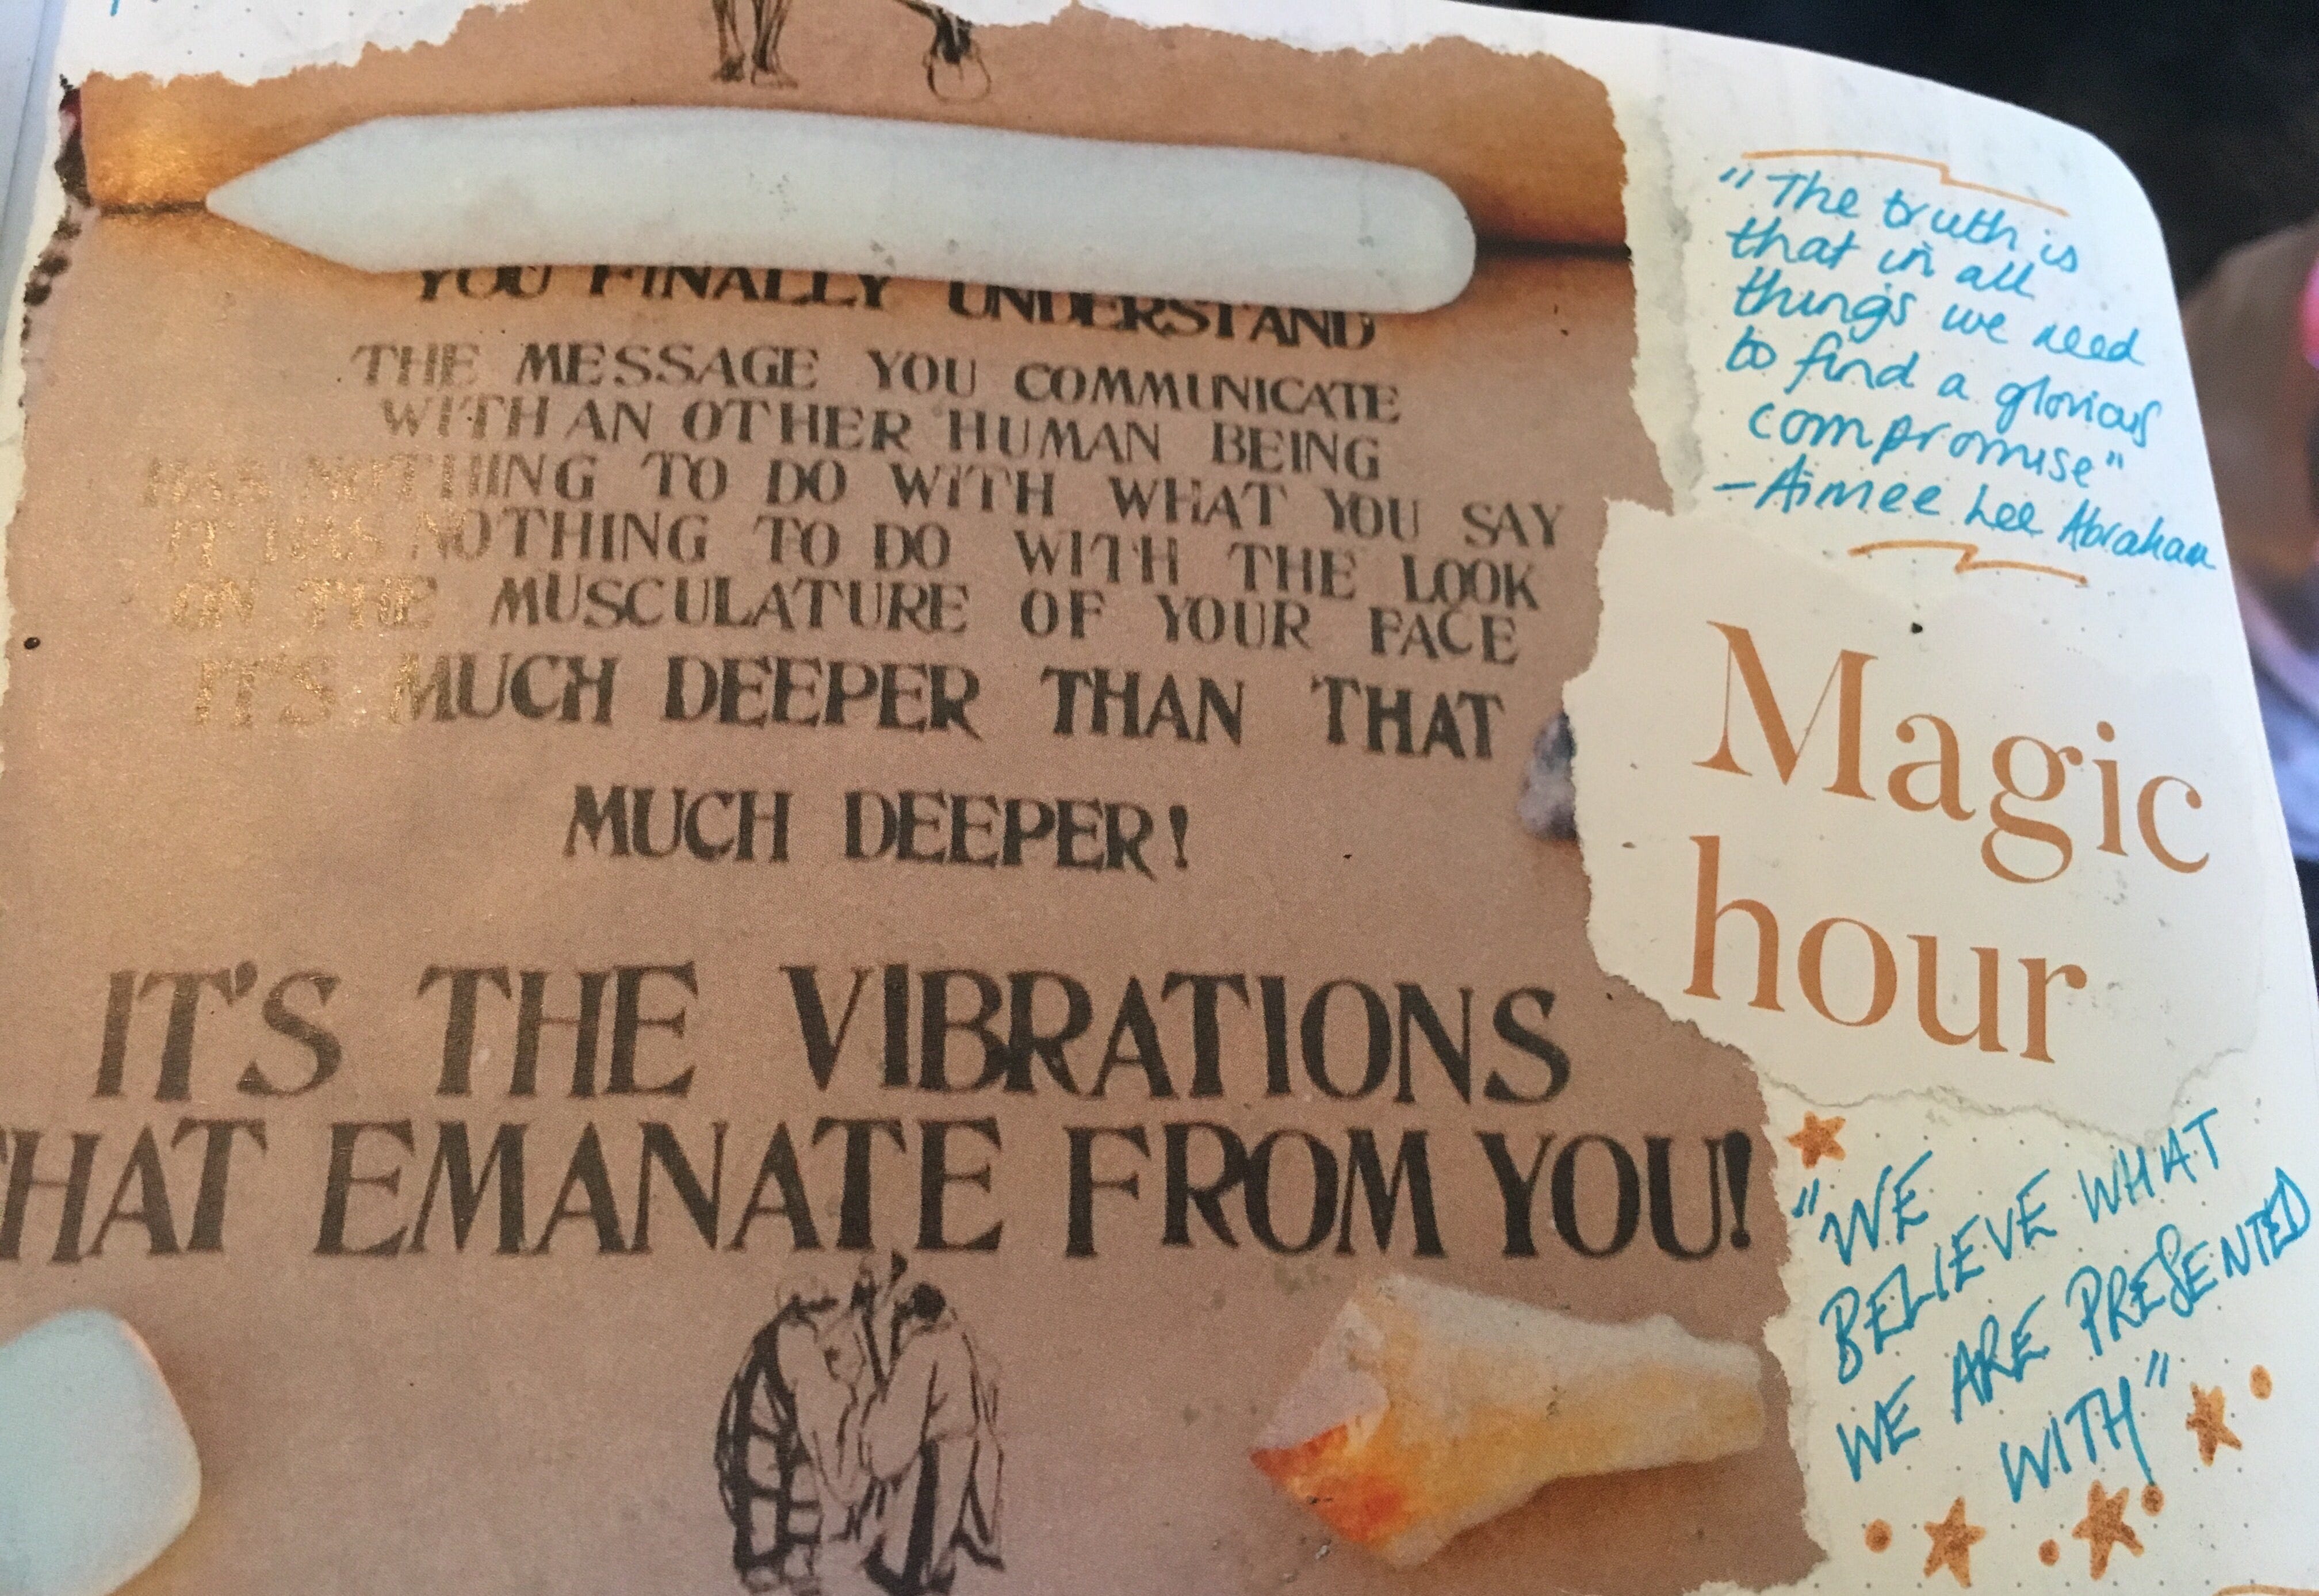 YOU FINALLY UNDERSTAND
THE MESSAGE YOU COMMUNICATE
WITH AN OTHER HUMAN BEING
HAS NOTHING TO DO WITH WHAT YOU SAY
IT HAS NOTHING TO DO WITH THE LOOK
ON THE MUSCULATURE OF YOUR FACE
IT'S MUCH DEEPER THAN THAT
MUCH DEEPER!
IT'S THE VIBRATIONS
THAT EMANATE FROM YOU!
"The truth is
that in all
things we need
to find a glorious
compromise"
- Aimee Lee Abraham
Magic
hour
"WE
BELIEVE WHAT
WE ARE PRESENTED
WITH"